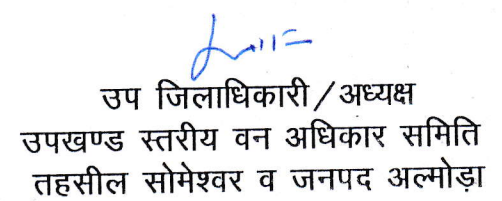 उप जिलाधिकारी/अध्यक्ष
उपखण्ड स्तरीय वन अधिकार समिति
तहसील सोमेश्वर व जनपद अल्मोड़ा